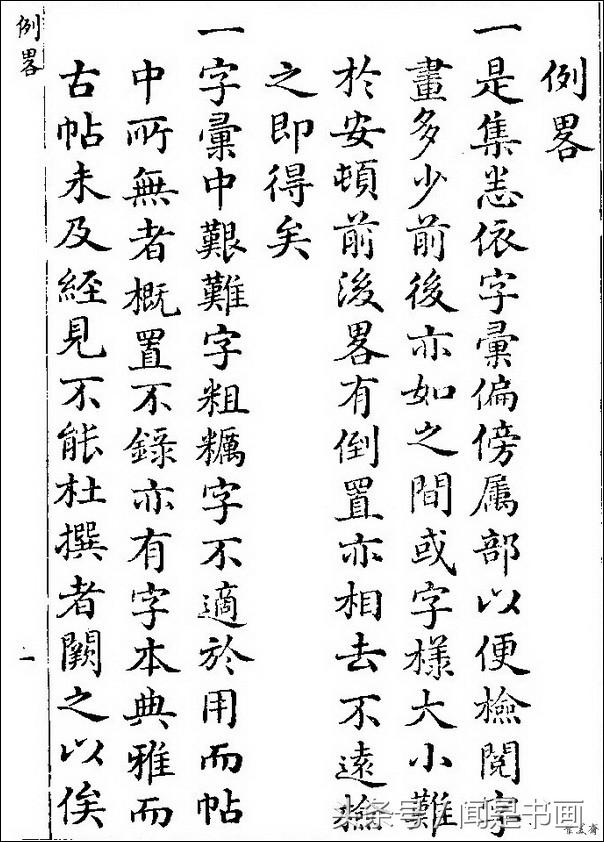 例畧
一是集悉依字彙偏傍属部以便檢閱字
畫多少前後亦如之間或字樣大小難
於安頓前後畧有倒置亦相去不遠檢
之即得矣
一字彙中艱難字粗糲字不適於用而帖
中所無者概置不錄亦有字本典雅而
古帖未及經見不能杜撰者闕之以俟
例畧
一
头条号/闻是书画